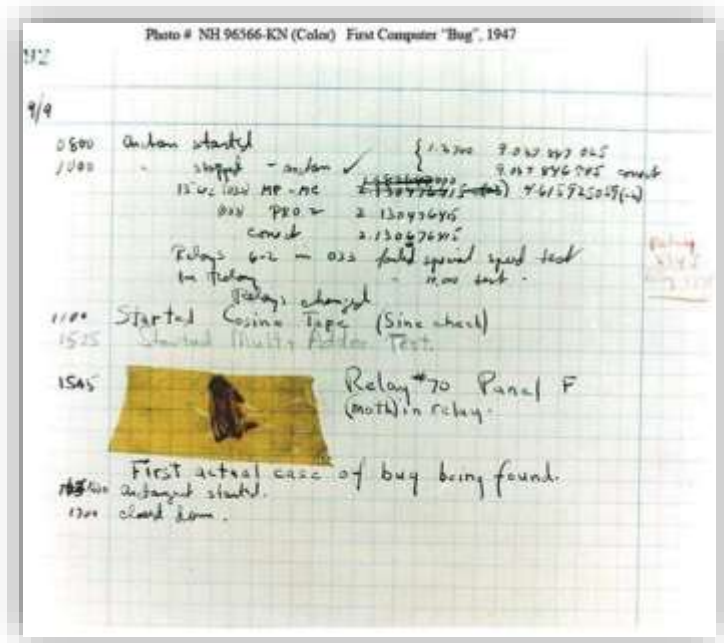 Photo # NH 96566-KN (Color) First Computer "Bug", 1947
92
9/9
0800 antan started
1000 " stopped - antan ✓
{ 1.2700 9.037 847 025
9.037 846 795 correct
13"uc (032) MP - MC 4.615925059(-2)
033 PRO 2 2.130476415
correct 2.130676415
Relays 6-2 in 033 failed special speed test
in Relay " 11.000 test.
Relays changed
1100 Started Cosine Tape (Sine check)
1525 Started Mult+Adder Test.
1545 Relay #70 Panel F
(moth) in relay.
First actual case of bug being found.
1600 antangent started.
1700 closed down.